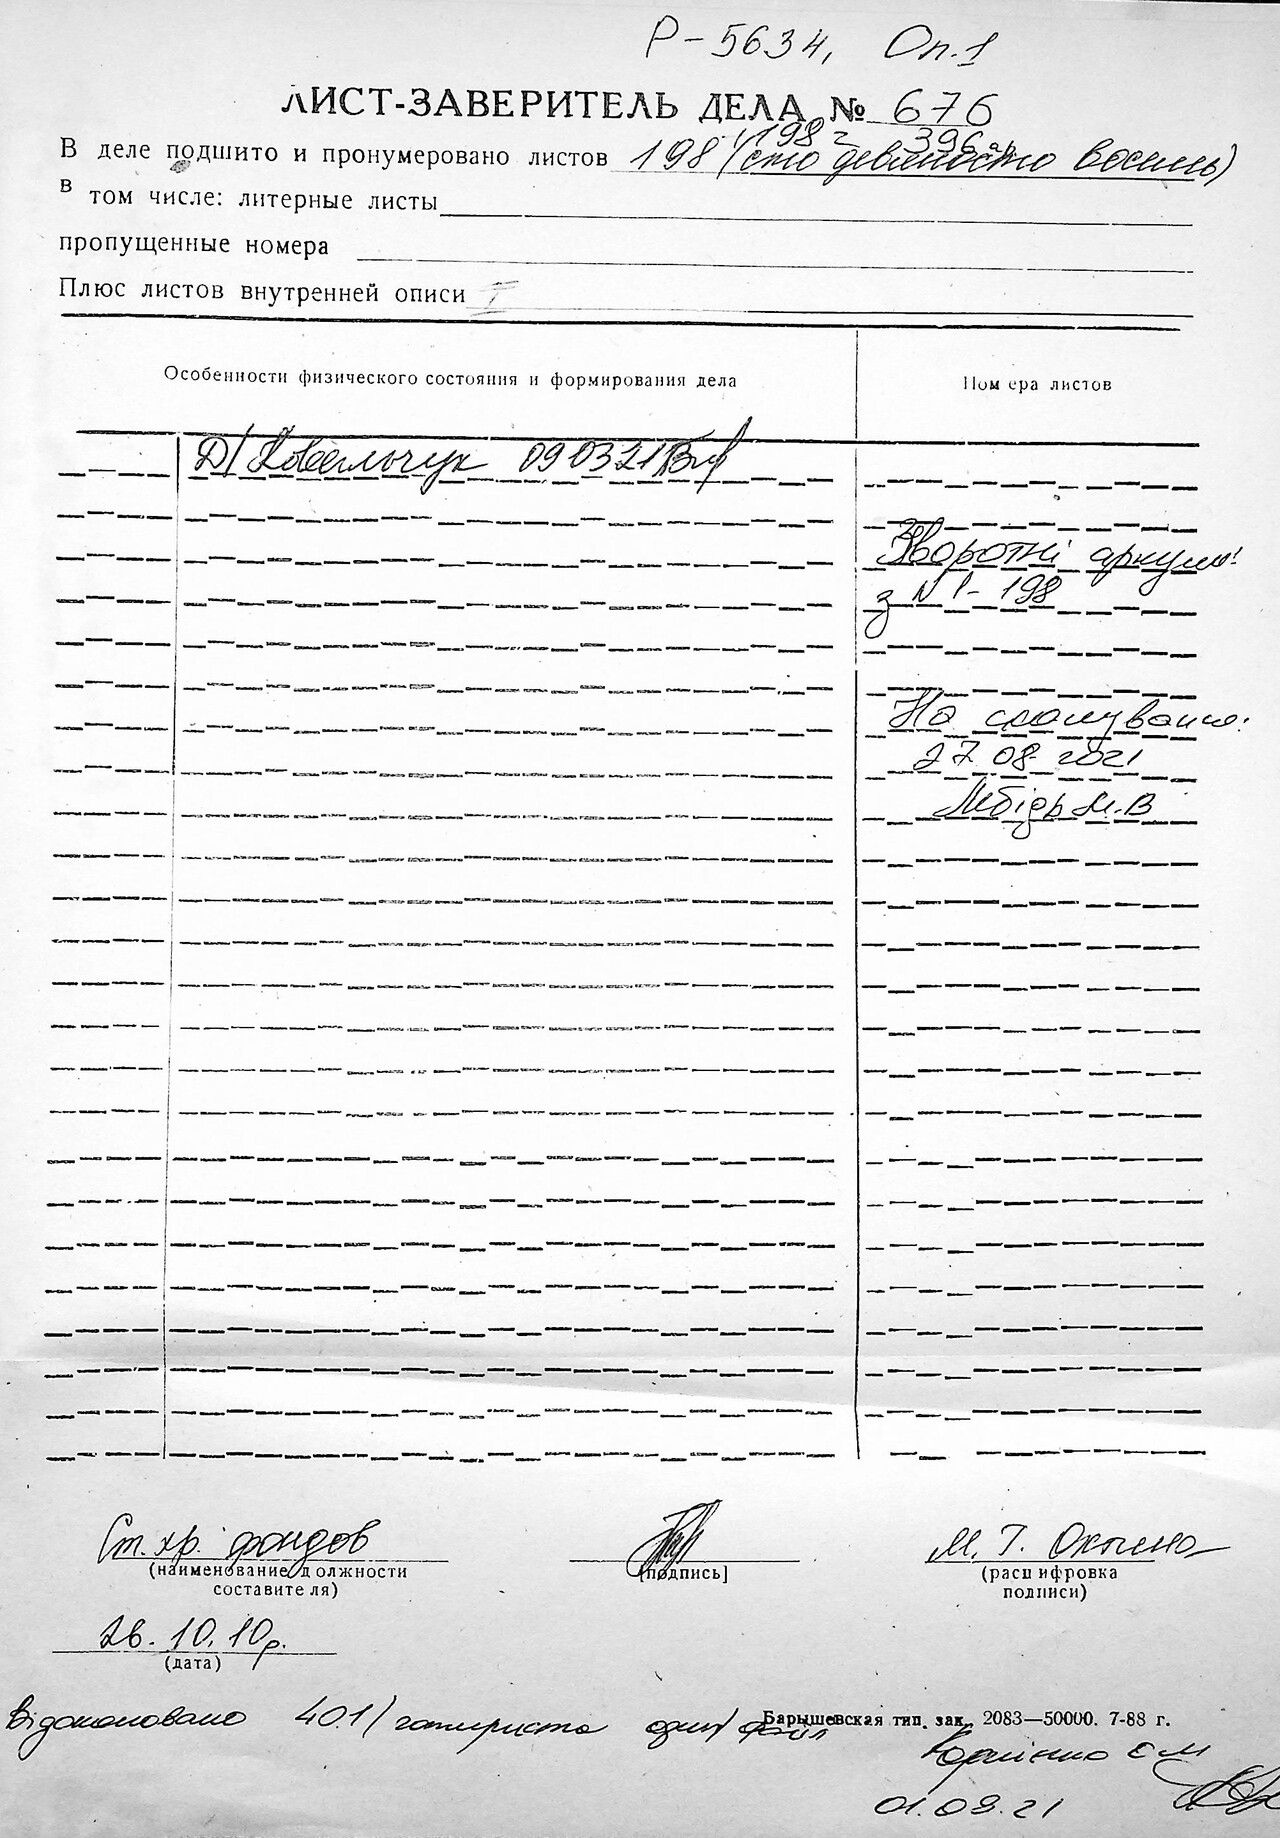 Р-5634, Оп.1
ЛИСТ-ЗАВЕРИТЕЛЬ ДЕЛА № 676
198 396
В деле подшито и пронумеровано листов 198 (сто девяносто восемь)
в том числе: литерные листы
пропущенные номера
Плюс листов внутренней описи
Особенности физического состояния и формирования дела
Номера листов
Д/ 090321
Зворотні аркуші
з N 1-198
На сканування:
27.08.2021
Лебідь М.В
Ст. хр. фондов
М. Г.
(наименование должности составителя)
(подпись)
(расшифровка подписи)
26.10.10р.
(дата)
Відскановано 401/чотириста один/ файл
Барышевская тип. зак. 2083—50000. 7-88 г.
01.09.21